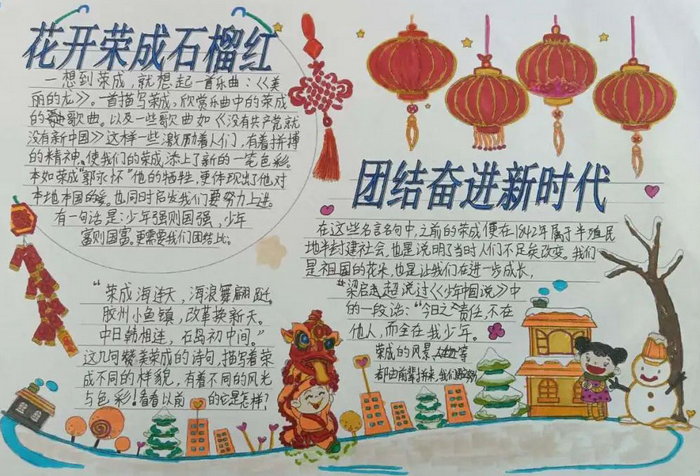 花开荣成石榴红
一想到荣成，就想起一首乐曲：《美
丽的龙》。一首描写荣成，欣赏乐曲中的荣成
的歌曲。以及一些歌曲如《没有共产党就
没有新中国》这样一些激励着人们，有着拼搏
的精神。使我们的荣成，添上了新的一笔色彩。
本如荣成"郭永怀"他的牺牲，更体现出了他对
本地本国的爱。也同时启发我们要努力上进。
有一句话是：少年强则国强，少年
富则国富。更需要我们团结比。
"荣成海连天，海浪舞翩跹。
胶州小鱼镇，改革换新天。
中日韩相连，石岛初中间。"
这几句赞美荣成的诗句，描写着荣
成不同的样貌，有着不同的风光
与色彩！看看以前的它是怎样？
团结奋进新时代
在这些名言名句中，之前的荣成便在1842年属于半殖民
地半封建社会，也是说明了当时人们不足矣改变。我们
是祖国的花朵，也是让我们在进一步成长，
"梁启超超说过《少年中国说》中
的一段话："今日之责任，不在
他人，而全在我少年。
荣成的风景，等
都由前辈我们